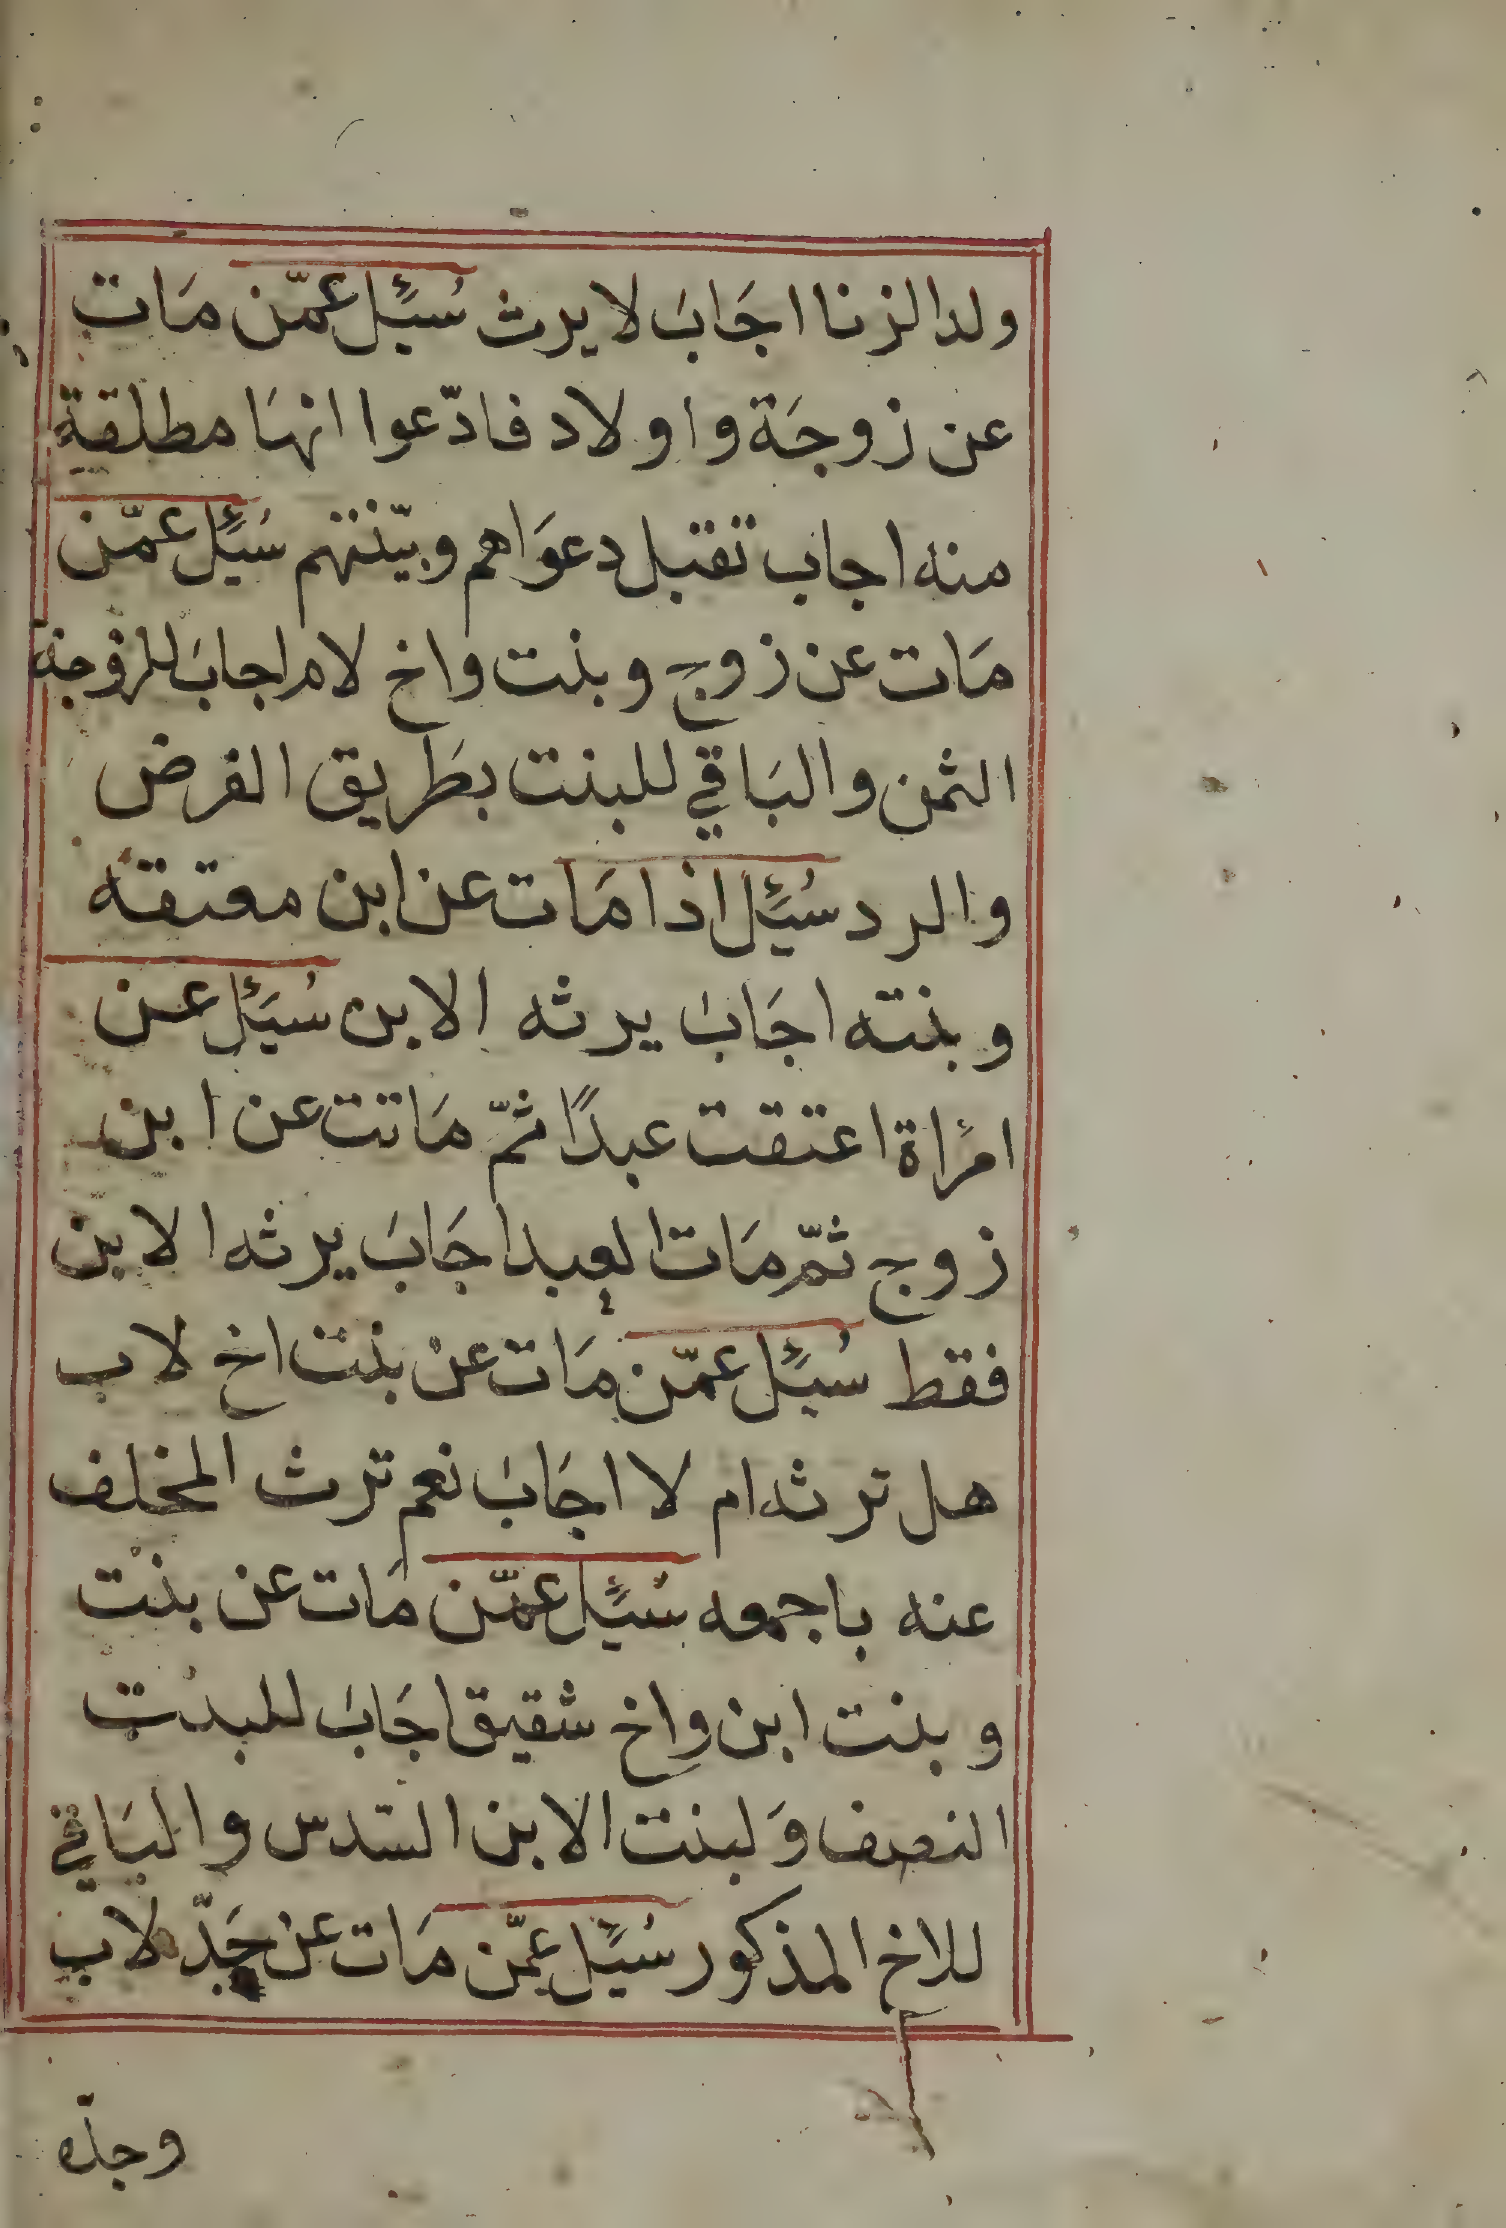 ولد الزنا اجَابَ لا يرث سُئِل عمّن مَات
عن زوجَة واولاد فادّعوا انهَا مطلقة
منه اجاب تقبل دعوَاهم وبيّنتهم سُئِل عمّن
مَات عن زوج وبنت واخ لام اجابَ للزوجة
الثمن والبَاقي للبنت بطَريق الفرض
والرد سُئِل اذا مَات عن ابن معتقه
وبنته اجَابَ يرثه الابن سُئِل عن
امرَاة اعتقت عبدًا ثمّ مَاتت عن ابن
زوج ثمّ مَات العبد اجَابَ يرثه الابن
فقط سُئِل عمّن مَات عن بنت اخ لاب
هل ترثه ام لا اجَابَ نعم ترث المخلف
عنه باجمعه سُئِل عمّن مَات عن بنت
وبنت ابن واخ شقيق اجَابَ للبنت
النصف وَلبنت الابن السّدس والبَاقي
للاخ المذكور سُئِل عمّن مَات عن جَدّ لاب
وجدّه